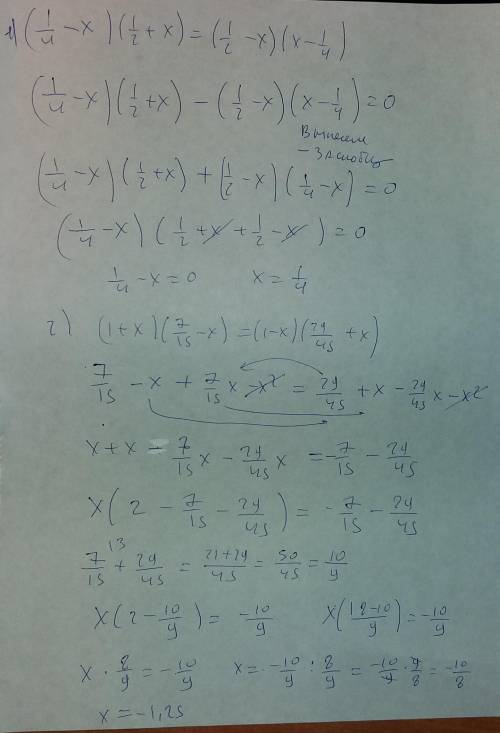 1) (1/4 - x)(1/2 + x) = (1/2 - x)(x - 1/4)
(1/4 - x)(1/2 + x) - (1/2 - x)(x - 1/4) = 0
Вынесем
- за скобку
(1/4 - x)(1/2 + x) + (1/2 - x)(1/4 - x) = 0
(1/4 - x)(1/2 + x + 1/2 - x) = 0
1/4 - x = 0 x = 1/4
2) (1+x)(7/15 - x) = (1-x)(29/45 + x)
7/15 - x + 7/15 x - x² = 29/45 + x - 29/45 x - x²
x + x - 7/15 x - 29/45 x = - 7/15 - 29/45
x(2 - 7/15 - 29/45) = - 7/15 - 29/45
7/15 |3 + 29/45 = 21+29/45 = 50/45 = 10/9
x(2 - 10/9) = -10/9 x(18-10/9) = -10/9
x · 8/9 = -10/9 x = -10/9 : 8/9 = -10/9 · 9/8 = -10/8
x = -1,25